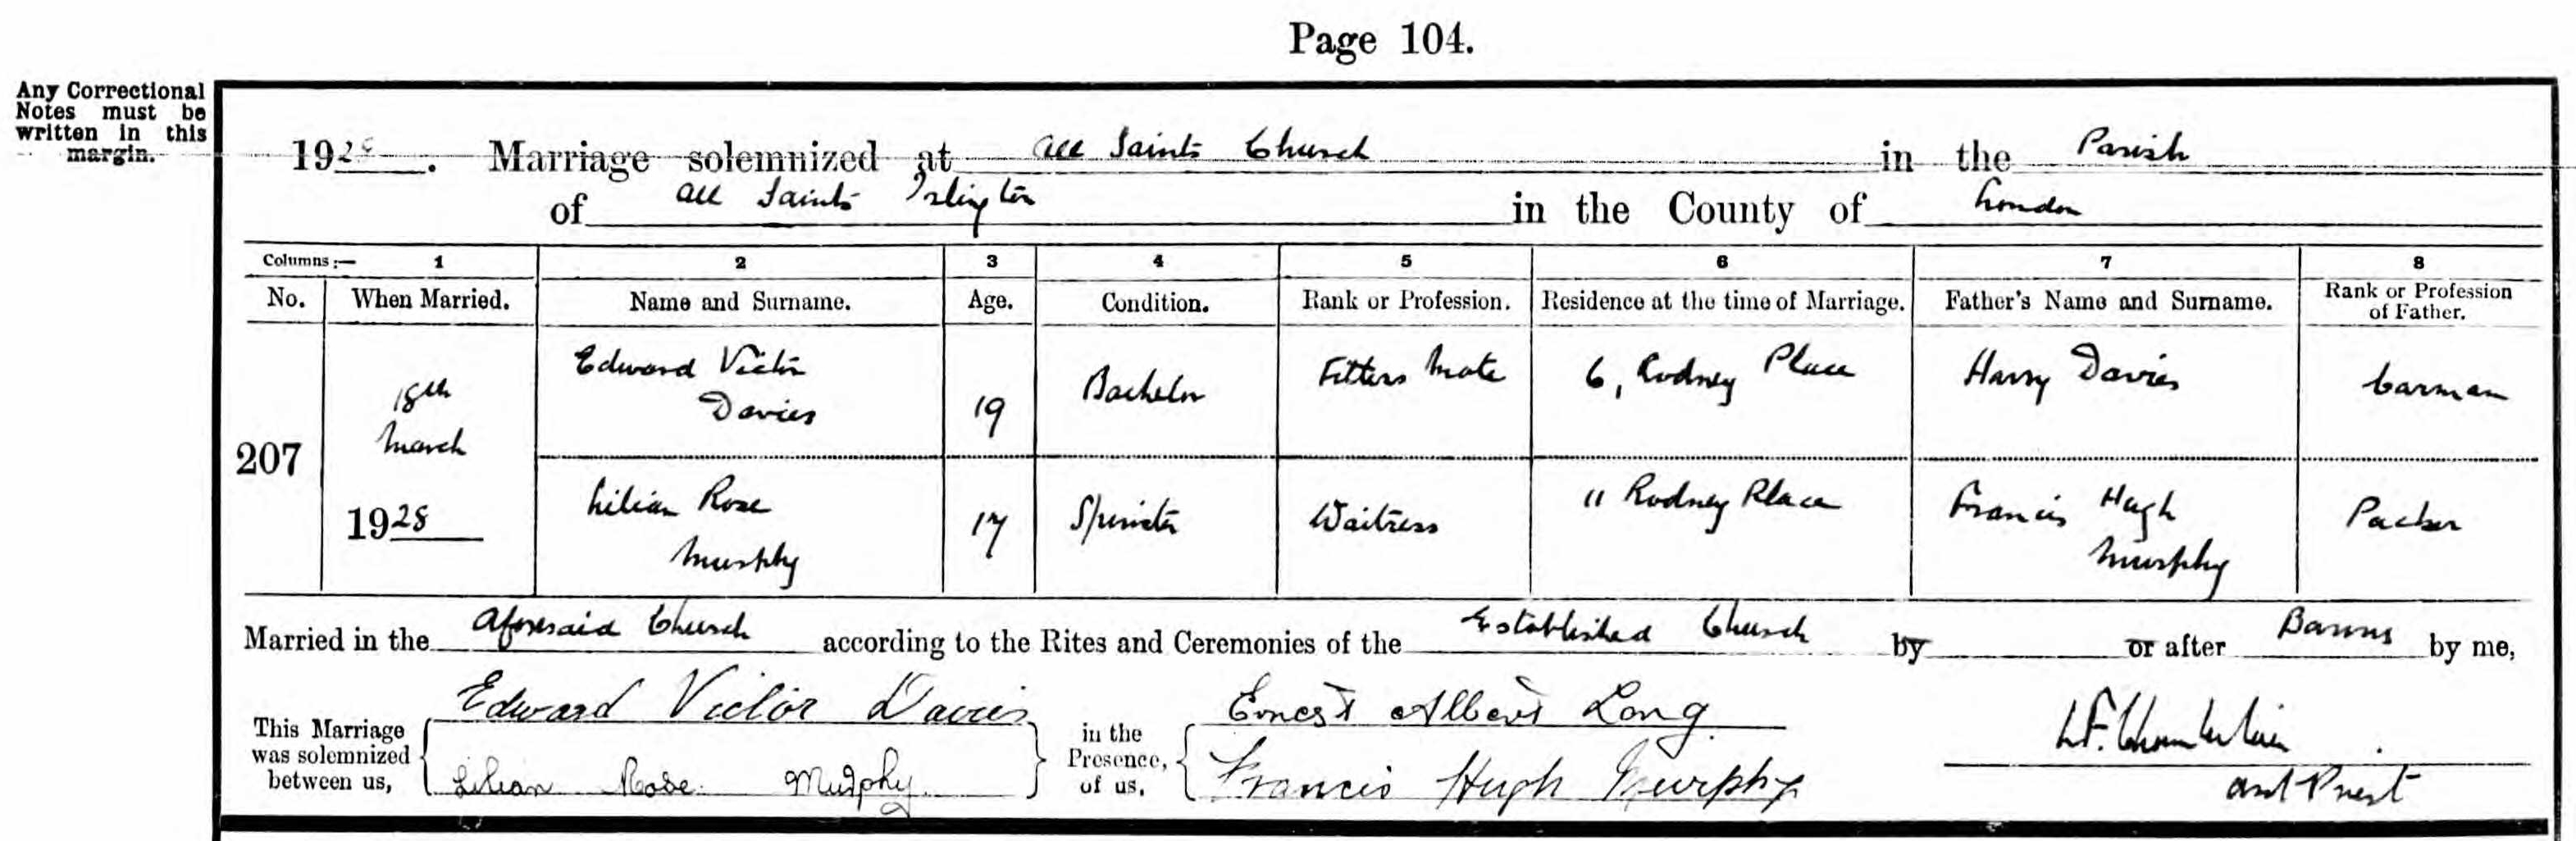 Page 104.
Any Correctional
Notes must be
written in this
margin.
1928. Marriage solemnized at All Saints Church in the Parish
of All Saints Islington in the County of London
Columns:— 1 2 3 4 5 6 7 8
No. When Married. Name and Surname. Age. Condition. Rank or Profession. Residence at the time of Marriage. Father's Name and Surname. Rank or Profession of Father.
207
18th
March
1928
Edward Victor
Davies
19
Bachelor
Fitters Mate
6, Rodney Place
Harry Davies
Carman
Lilian Rose
Murphy
17
Spinster
Waitress
11 Rodney Place
Francis Hugh
Murphy
Packer
Married in the Aforesaid Church according to the Rites and Ceremonies of the Established Church by or after Banns by me,
This Marriage
was solemnized
between us,
Edward Victor Davies
Lilian Rose Murphy
in the
Presence,
of us,
Ernest Albert Long
Francis Hugh Murphy
Chamberlain
Priest